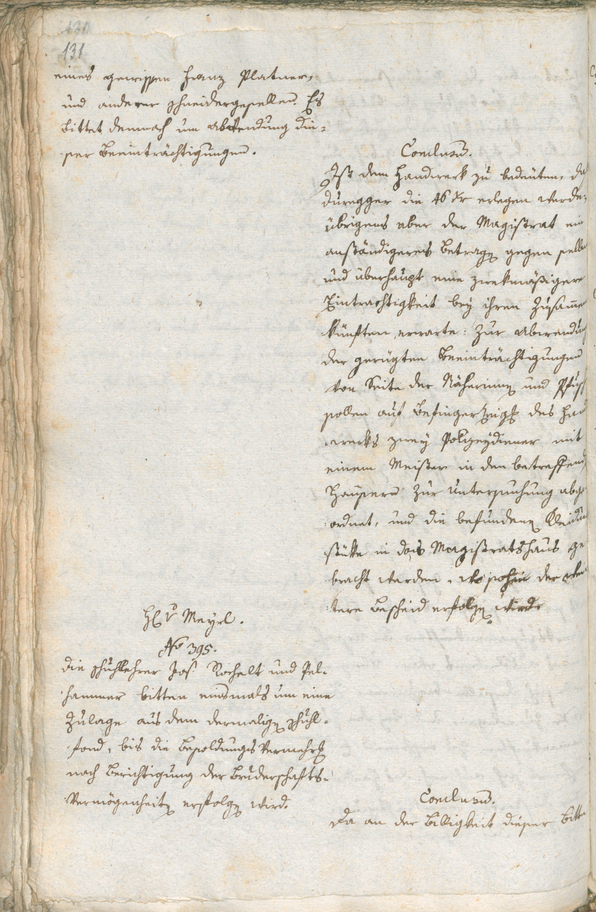 131
eines gewissen Franz Platner,
und anderer Schneidergesellen. Es
bittet demnach um Abwendung die-
ser Beeinträchtigungen.
Conclusum.
Ist dem Handwerk zu bedeuten, daß
Duregger die 46 Xr erlegen werde,
übrigens aber der Magistrat ein
anständigeres Betragen gegen selben
und überhaupt eine zwekmäßigere
Einträchtigkeit bey ihren Zusamm-
künften erwarte: zur Abwendung
der gerügten Beeinträchtigungen
von Seite der Näherinnen und
sollen auf des Hand-
werks zwey Polizeydiener mit
einem Meister in den betreffenden
Häusern zur Untersuchung abge-
ordnet, und die befundenen Kleidungs-
stüke in das Magistratshaus ge-
bracht werden, wo sohin der
tere Bescheid erfolgen wird.
H v Mayrl.
No 395.
die Schullehrer Jos. Rochelt und Pel-
hammer bitten einsmals um eine
Zulage aus dem dermaligen Schul-
fond, bis die Besoldungs Vermehrg
nach Berichtigung der Bruderschafts-
Vermögenheiten erfolgen wird.
Conclusum.
Da an der Billigkeit dieser Bitte